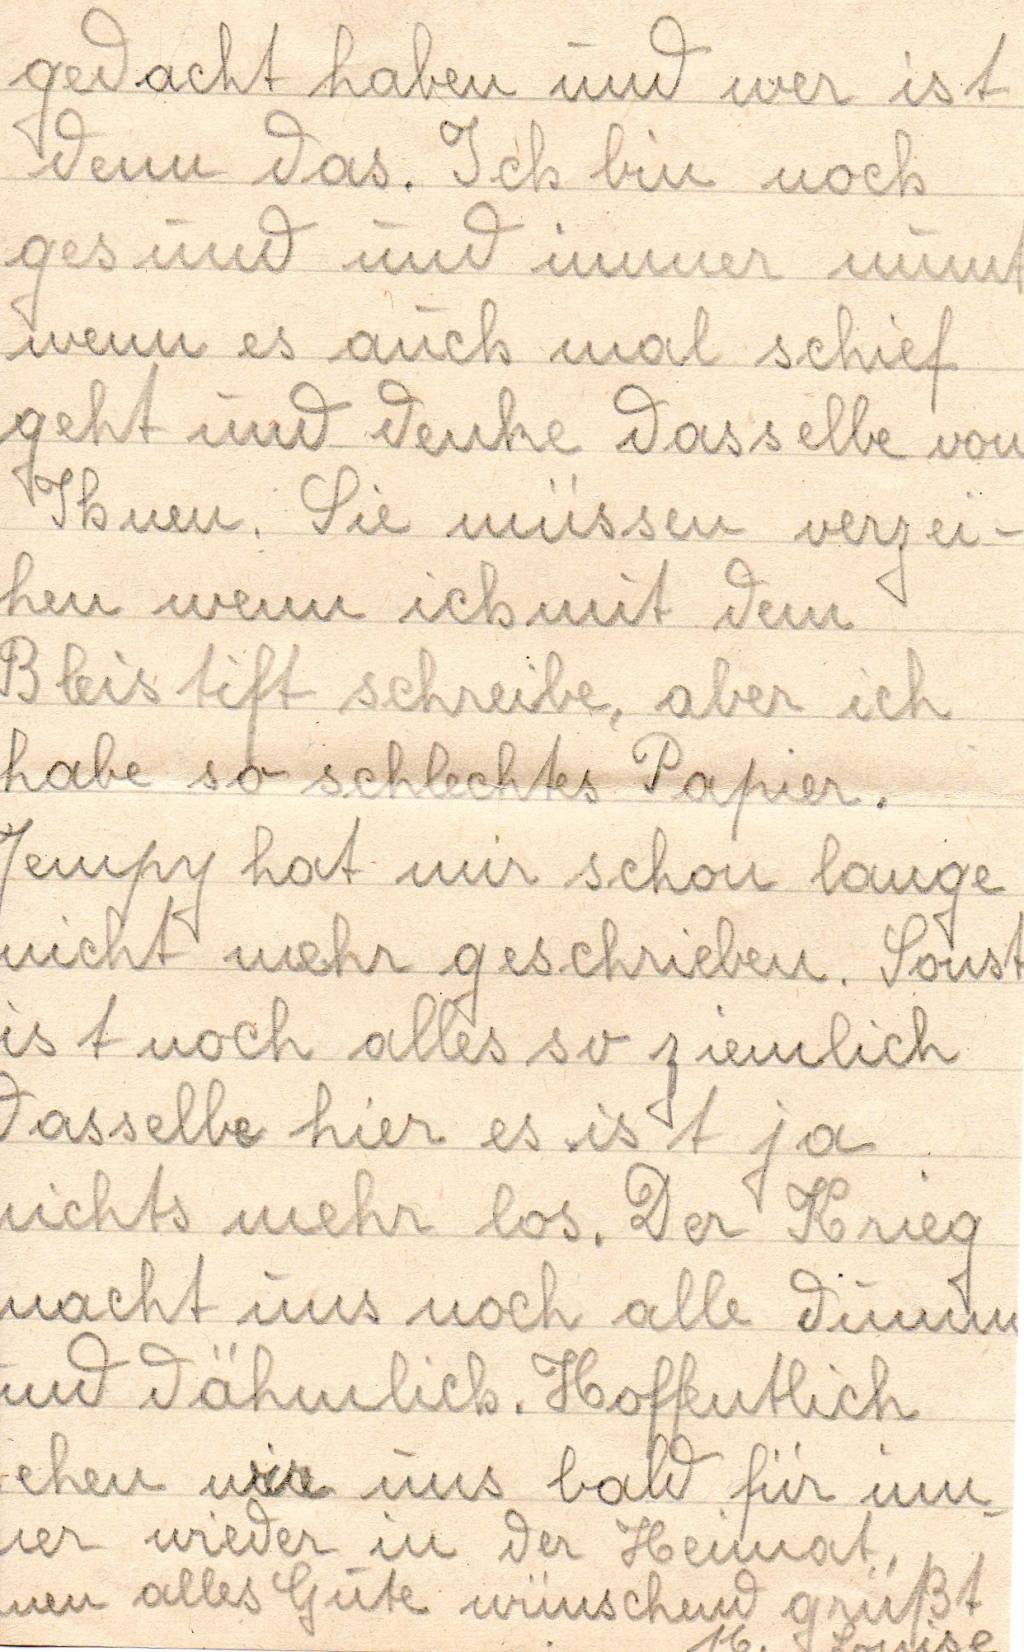 gedacht haben und wer ist
denn das. Ich bin noch
gesund und immer munt
wenn es auch mal schief
geht und denke dasselbe von
Ihnen. Sie müssen verzei-
hen wenn ich mit dem
Bleistift schreibe, aber ich
habe so schlechtes Papier.
Jempy hat mir schon lange
nicht mehr geschrieben. Sonst
ist noch alles so ziemlich
dasselbe hier es ist ja
nichts mehr los. Der Krieg
macht uns noch alle dumm
und dähmlich. Hoffentlich
ehen wir uns bald für im-
mer wieder in der Heimat.
nen alles Gute wünschend grüßt
Louise